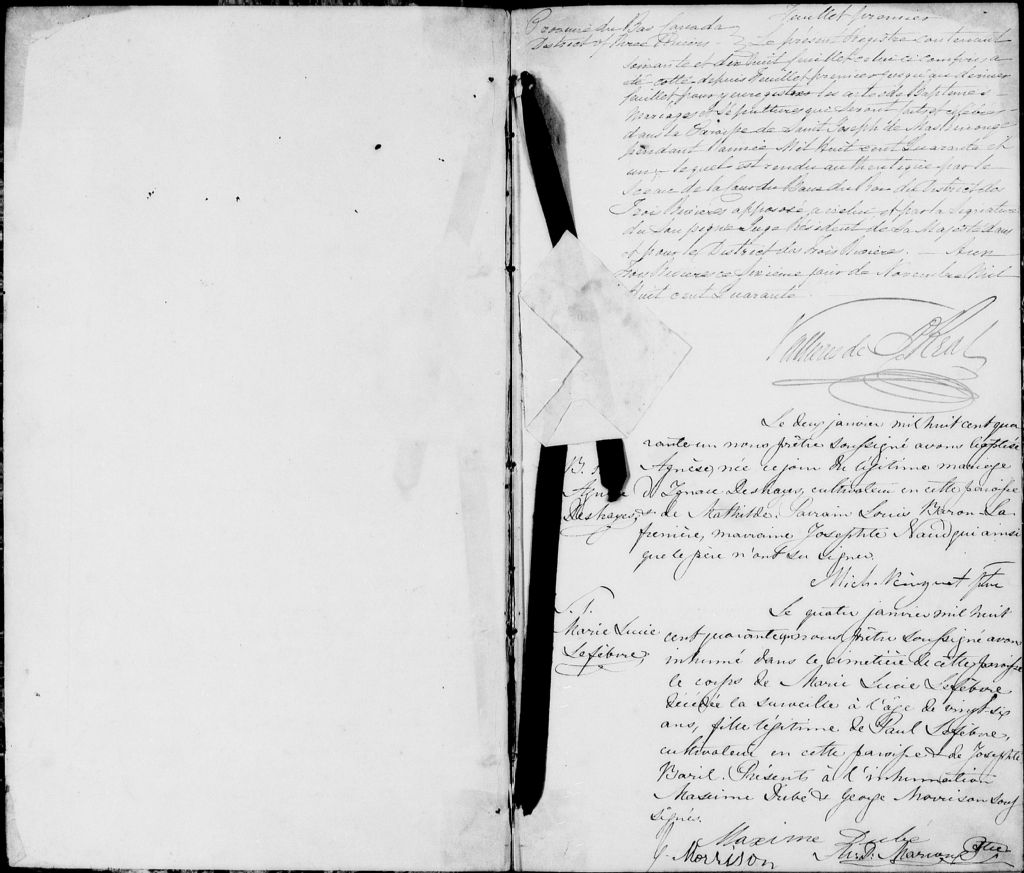 Feuillet premier
Province du Bas Canada
District of Three Rivers Le present Registre contenant
soixante et dix huit feuillet celui ci compris, a
été cotté depuis Feuillet premier jusqu'au dernier
feuillet pour y enregistrer les actes de Baptemes
Mariages et Sépultures qui seront faits et célébrés
dans la Paroisse de Saint Joseph de Maskinongé
pendant l'année Mil huit cent Quarante et
un, lequel est rendu authentique par le
Sceau de la Cour du Banc du Roi du District des
Trois Rivières apposé a icelui et par la Signature
du Soussigné Juge Résident de Sa Majesté dans
et pour le District des Trois Rivières. Aux
Trois Rivieres ce sixième jour de Novembre Mil
Huit cent Quarante
Vallières de St Real
Le deux janvier mil huit cent qua
rante un nous prêtre soussigné avons baptisé
B. 1
Agnèse, née ce jour du légitime mariage
Agnèse
d'Ignace Deshayes, cultivateur en cette paroisse
Deshayes
& de Mathilde. Parrain Louis Baron La
frenière, marraine Josephte Naud qui ainsi
que le père n'ont su signer.
Mich. Ptre
Le quatre janvier mil huit
S. 1.
Marie Lucie
cent quarante un nous prêtre soussigné avons
Lefebvre
inhumé dans le cimetière de cette paroisse
le corps de Marie Lucie Lefebvre
décédée la surveille à l'âge de vingt six
ans, fille légitime de Paul Lefebvre,
cultivateur en cette paroisse & de Josephte
Baril. Présents à l'inhumation
Maxime Dubé & George Morrison sous
signés.
Maxime Dubé
G. Morrison Ptre